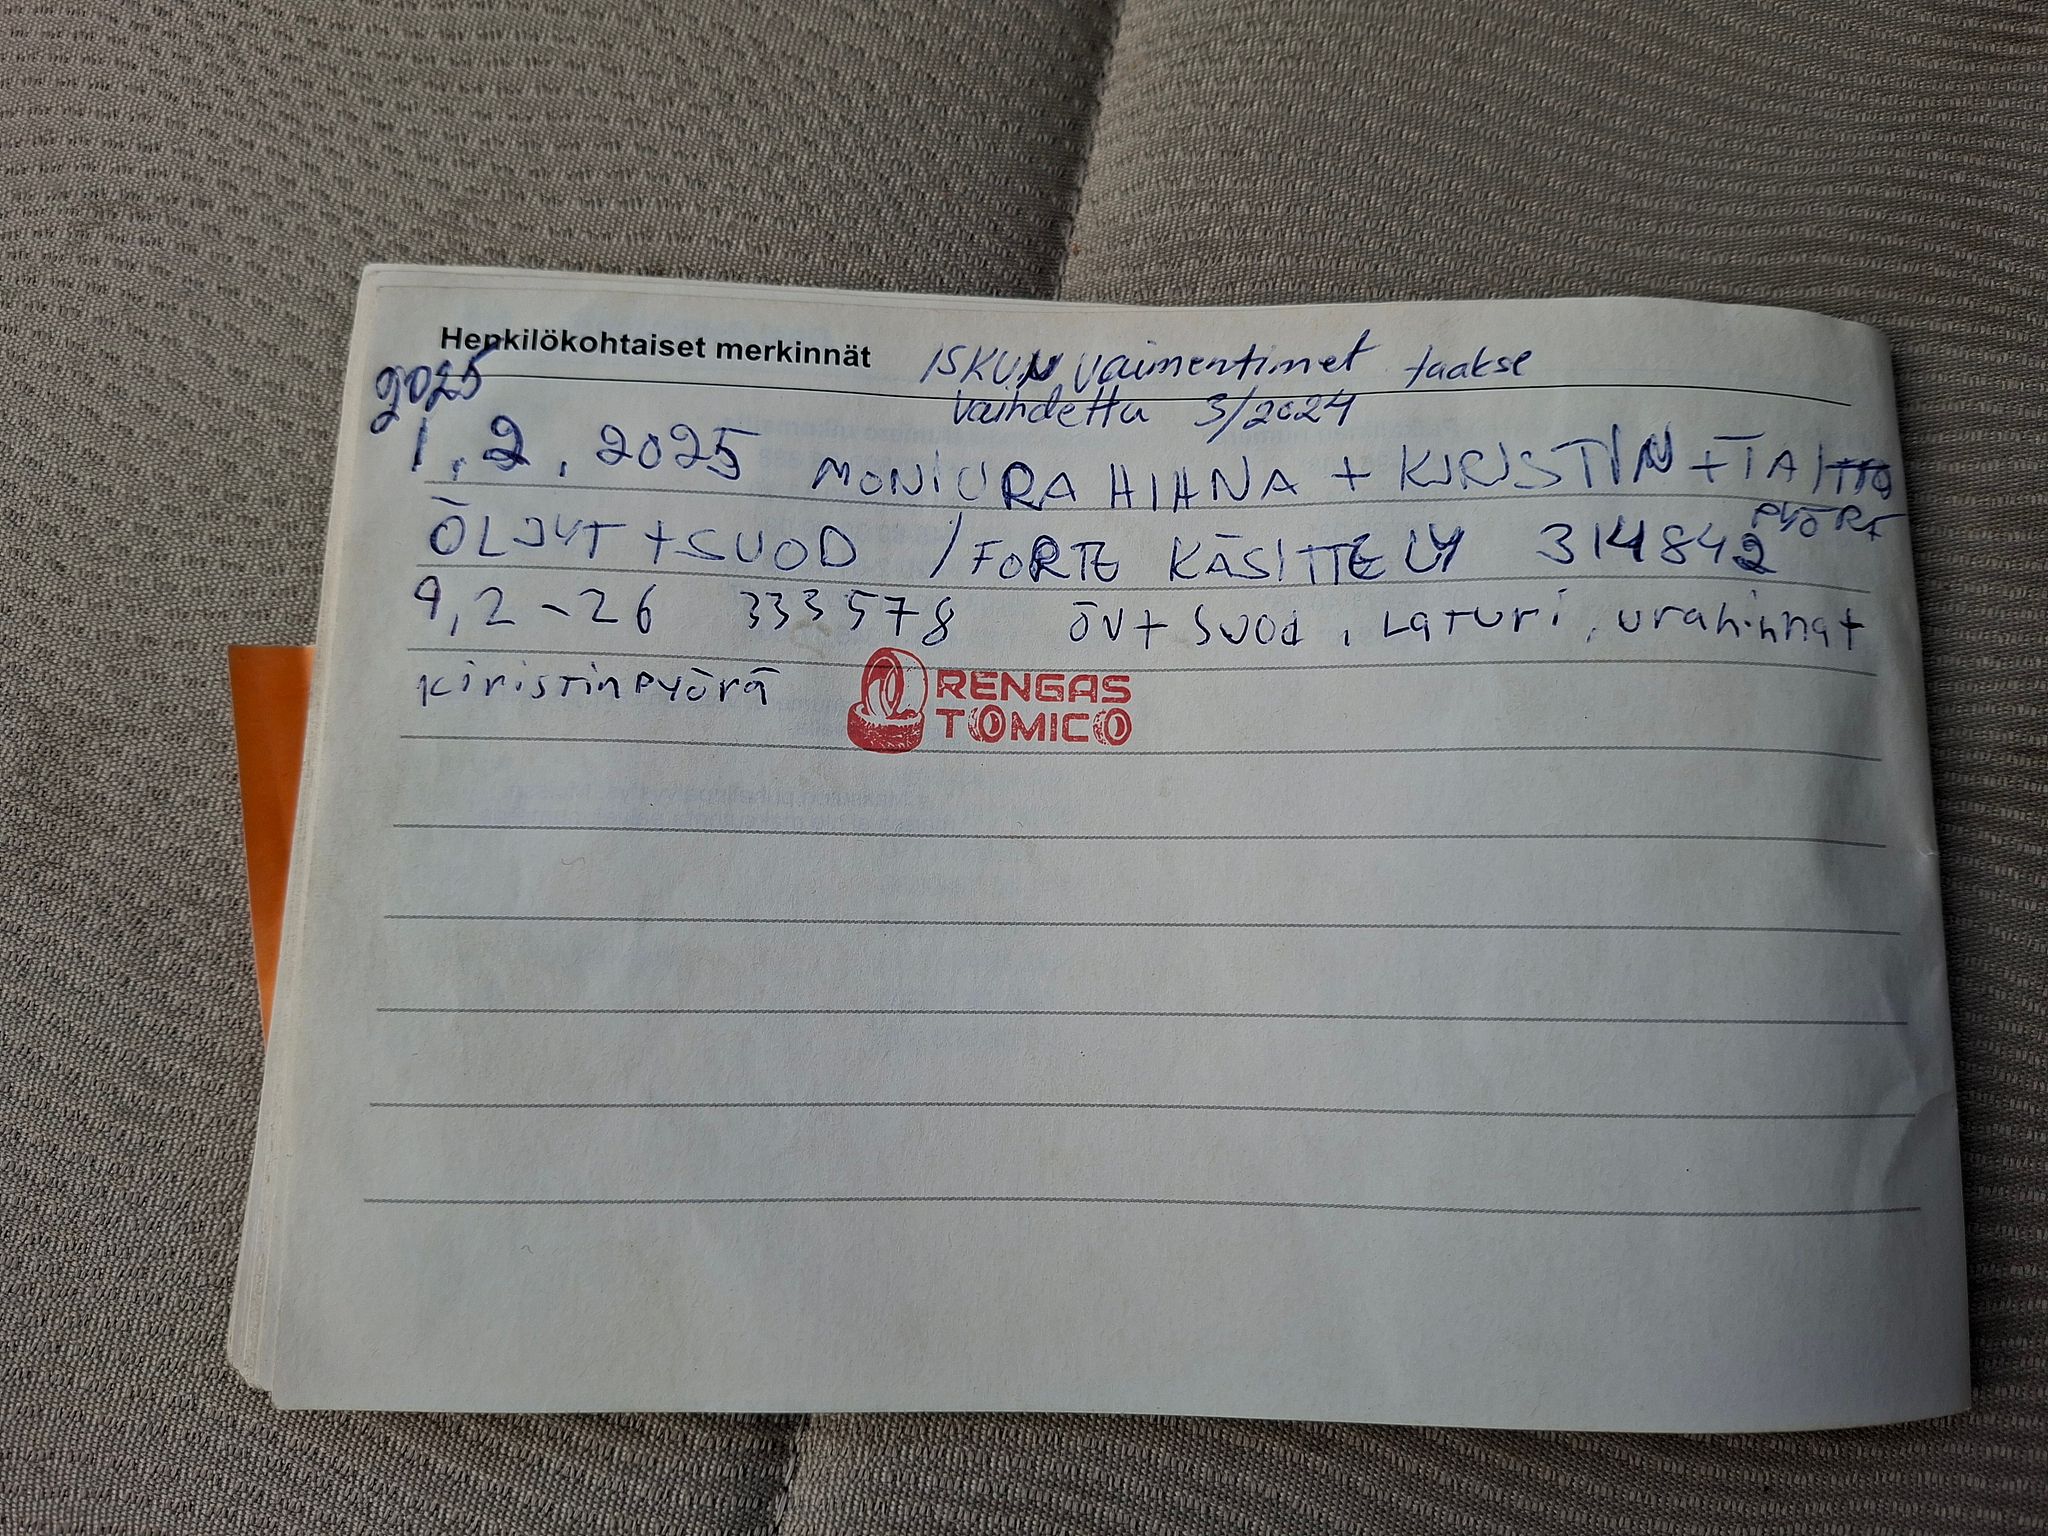 Henkilökohtaiset merkinnät
ISKUN vaimentimet taakse
vaihdettu 3/2024
2025
1.2.2025 MONIURA HIHNA + KIRISTIN + TAITTO
PYÖRÄ
ÖLJYT + SUOD / FORTE KÄSITTELY 314842
9,2-26 333578 ÖV+ SUOd, LaTUri, urahihnat
kiristinpyörä
RENGAS
TOMICO